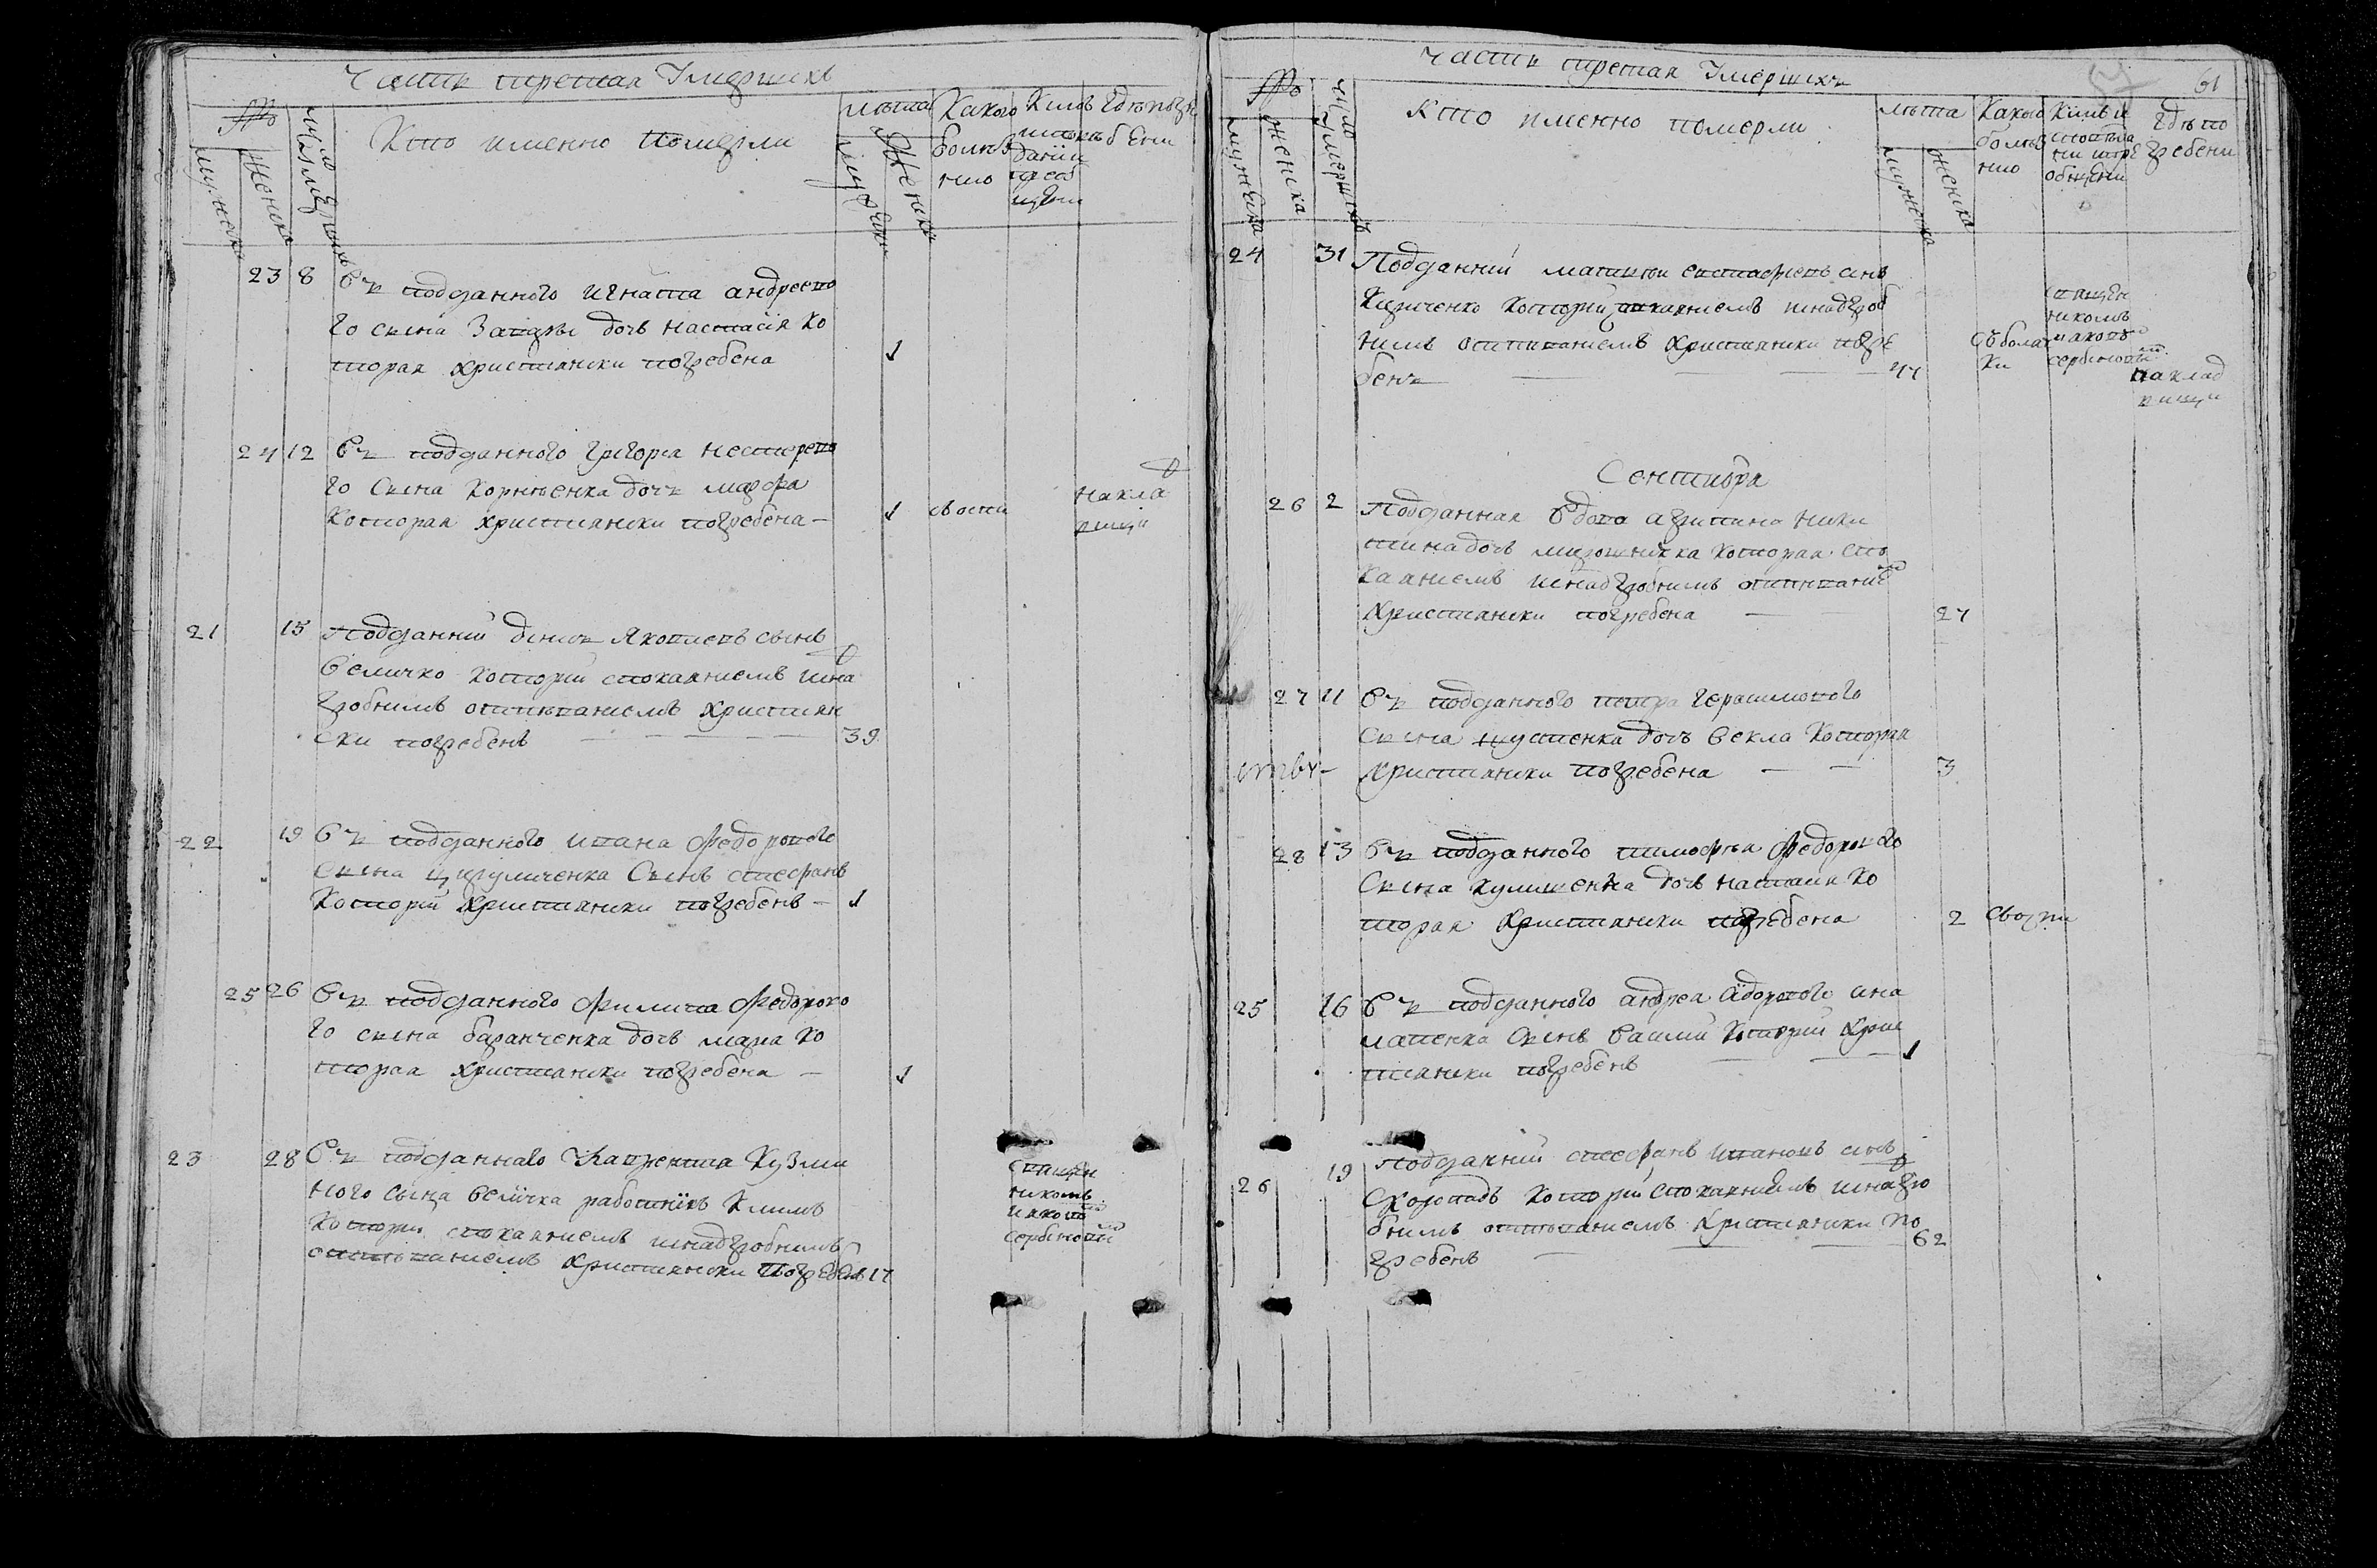 Часть третая Умершихъ
№
мужеска
женска
число умершихъ
Кто именно померли
лѣта
мужеска
женска
Какою
болѣз
нию
Кимъ
погребени
23 8 Въ подданного Игната андреево
го сына дочь настасія ко
торая христиански погребена 1
24 12 Въ подданного григорія несторево
го сына Корнѣенка дочь марфа
Которая христиански погребена – 1 своспи
накла
вищи
21 15 Подданний денисъ Яковлевъ сынъ
Величко Которій спокаяниемъ ина
гробнимъ отпѣваниемъ христиан
ски погребенъ 39
22 19 Въ подданного ивана федорового
сына сынъ стефанъ
Которій христиански погребенъ – 1
25 26 Въ подданного филипа федорово
го сына баранченка дочь мария ко
торая христиански погребена – 1
23 28 Въ подданнаго Лаврентия Кузми
ного сына Велічка работникъ Климъ
Которій спокаяниемъ инадгробнимъ
отпѣваниемъ христиански погребенъ 17
священ
никомъ
иаковомъ
сербиновим
Часть третая Умершихъ
61
№
мужеска
женска
число умершихъ
Кто именно померли
лѣта
мужеска
женска
Какою
болѣз
нию
Кимъ и
общени
Где по
гребени
24 31 Подданний матвей евстафиевъ синъ
Кириченко Которій спокаяниемъ инадгроб
нимъ отпѣваниемъ христиански погре
бенъ 44
ки
священ
никомъ
иаковомъ
сербиновим
наклад
вищи
Сентября
26 2 Подданная Вдова агрипина ники
тина дочь мирошника которая спо
каяниемъ инадгробнимъ отпѣвание
христиански погребена 27
27 11 Въ подданного петра герасимового
сына шустенка дочь Векла Которая
христиански погребена 3
28 13 Въ подданного тимофѣа федорового
сына кулишенка дочь настасия ко
торая христиански погребена 2 своспи
25 16 Въ подданного андрея
сынъ Василий Которий хрис
тиански погребенъ 1
26 19 Подданний стефанъ ивановъ синъ
Скоропадъ Которій спокаяниемъ инадгро
бнимъ отпѣваниемъ христиански по
гребенъ 62